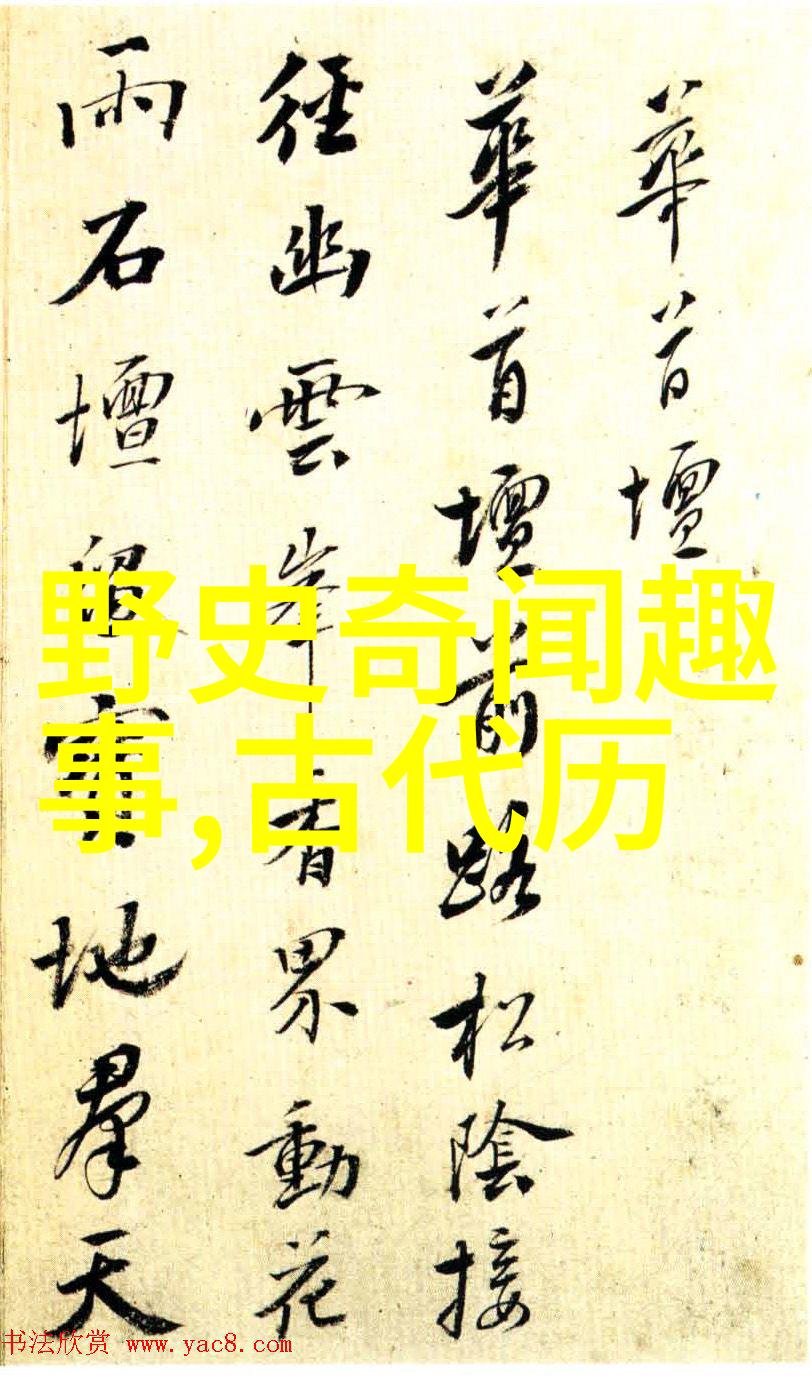 華首壇
華首壇前路松陰接
徑幽雲岸香界動花
雨石壇留寶地羣天
野史奇闻趣
事,古代历
书法欣赏 www.yac8.com